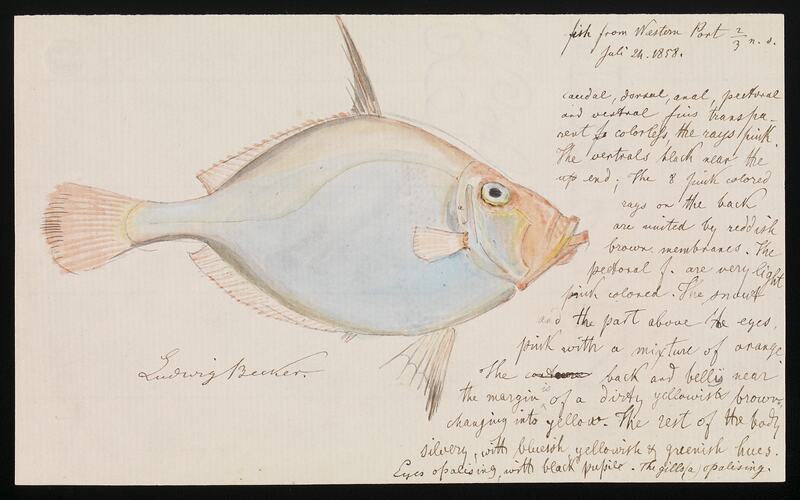 fish from Western Port 2/3 n. s.
Juli 24. 1858.
caudal, dorsal, anal, pectoral
and ventral fins transpa-
rent & colorless, the rays pink.
The ventrals black near the
up end; The 8 pink colored
rays on the back
are united by reddish
brown membranes. The
pectoral f. are very light
pink colored. The snout
and the part above the eyes,
pink with a mixture of orange.
The back and bellis near
the margin is of a dirty yellowish brown,
changing into yellow. The rest of the body
silvery, with blueish yellowish & greenish hues.
Eyes opalising, with black pupils. The gills(a) opalising.
Ludwig Becker.